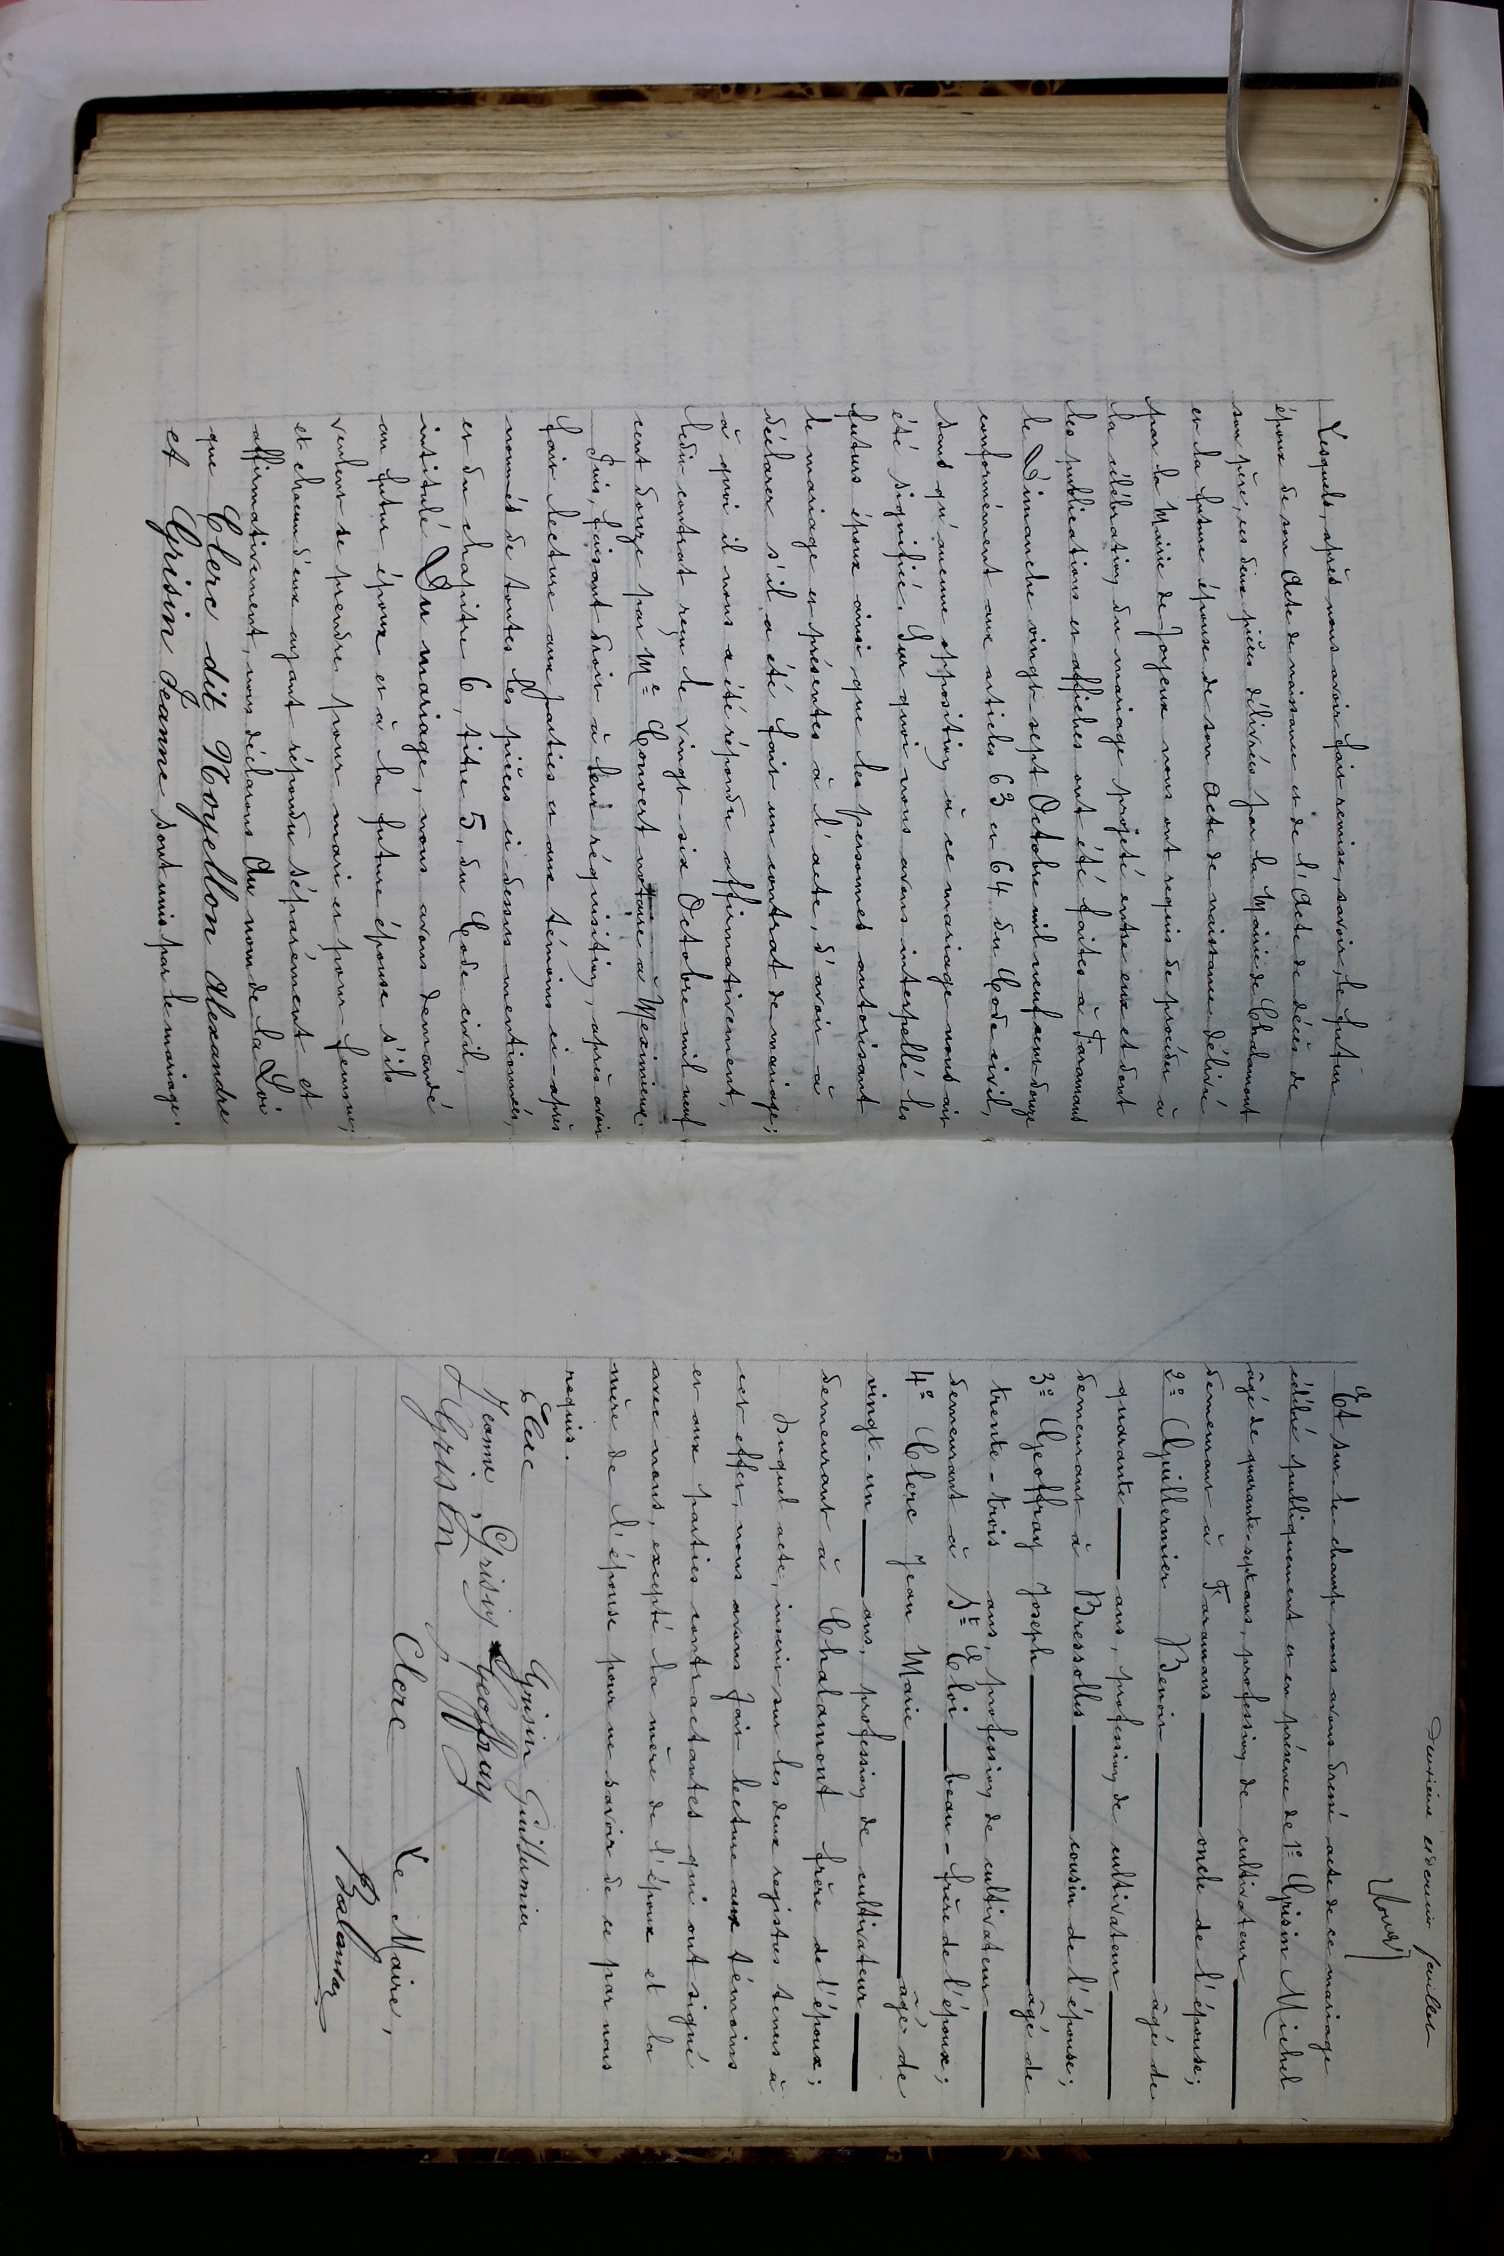 Lesquels, après nous avoir fait remise, savoir, le futur
époux de son Acte de naissance et de l'Acte de décès de
son père, ces deux pièces délivrées par la Mairie de Chalamont
et la future épouse de son Acte de naissance délivré
par la Mairie de Joyeux nous ont requis de procéder à
la célébration du mariage projeté entre eux et dont
les publications et affiches ont été faites à Faramans
le Dimanche vingt sept Octobre mil neuf cent douze
conformément aux articles 63 et 64 du Code civil,
sans qu'aucune opposition à ce mariage nous ait
été signifiée. Sur quoi nous avons interpellé les
futurs époux ainsi que les personnes autorisant
le mariage et présentes à l'acte, d'avoir à
déclarer s'il a été fait un contrat de mariage;
à quoi il nous a été répondu affirmativement,
ledit contrat reçu le vingt-six Octobre mil neuf
cent douze par Me Convert notaire à Meximieux.
Puis, faisant droit à leur réquisition, après avoir
fait lecture aux parties et aux témoins ci-après
nommés de toutes les pièces ci-dessus mentionnées,
et du chapitre 6, titre 5, du Code civil,
intitulé Du mariage, nous avons demandé
au futur époux et à la future épouse s'ils
veulent se prendre pour mari et pour femme;
et chacun d'eux ayant répondu séparément et
affirmativement, nous déclarons Au nom de la Loi
que Clerc dit Noyellon Alexandre
et Grisin Jeanne sont unis par le mariage.
Deuxième et dernier feuillet
Et sur-le-champ nous avons dressé acte de ce mariage
célébré publiquement et en présence de 1° Grisin Michel
âgé de quarante-sept ans, profession de cultivateur
demeurant à Faramans oncle de l'épouse;
2° Guillermier Benoit âgé de
quarante ans, profession de cultivateur
demeurant à Bressolles cousin de l'épouse;
3° Geoffray Joseph âgé de
trente-trois ans, profession de cultivateur
demeurant à St Eloi beau-frère de l'époux;
4° Clerc Jean Marie âgé de
vingt-un ans, profession de cultivateur
demeurant à Chalamont frère de l'époux;
Duquel acte, inscrit sur les deux registres tenus à
cet effet, nous avons fait lecture aux témoins
et aux parties contractantes qui ont signé
avec nous, excepté la mère de l'époux et la
mère de l'épouse pour ne savoir de ce par nous
requis.
Clerc Grisin Guillermier
Jeanne Grisin Geoffray
Grisin
Clerc Le Maire,